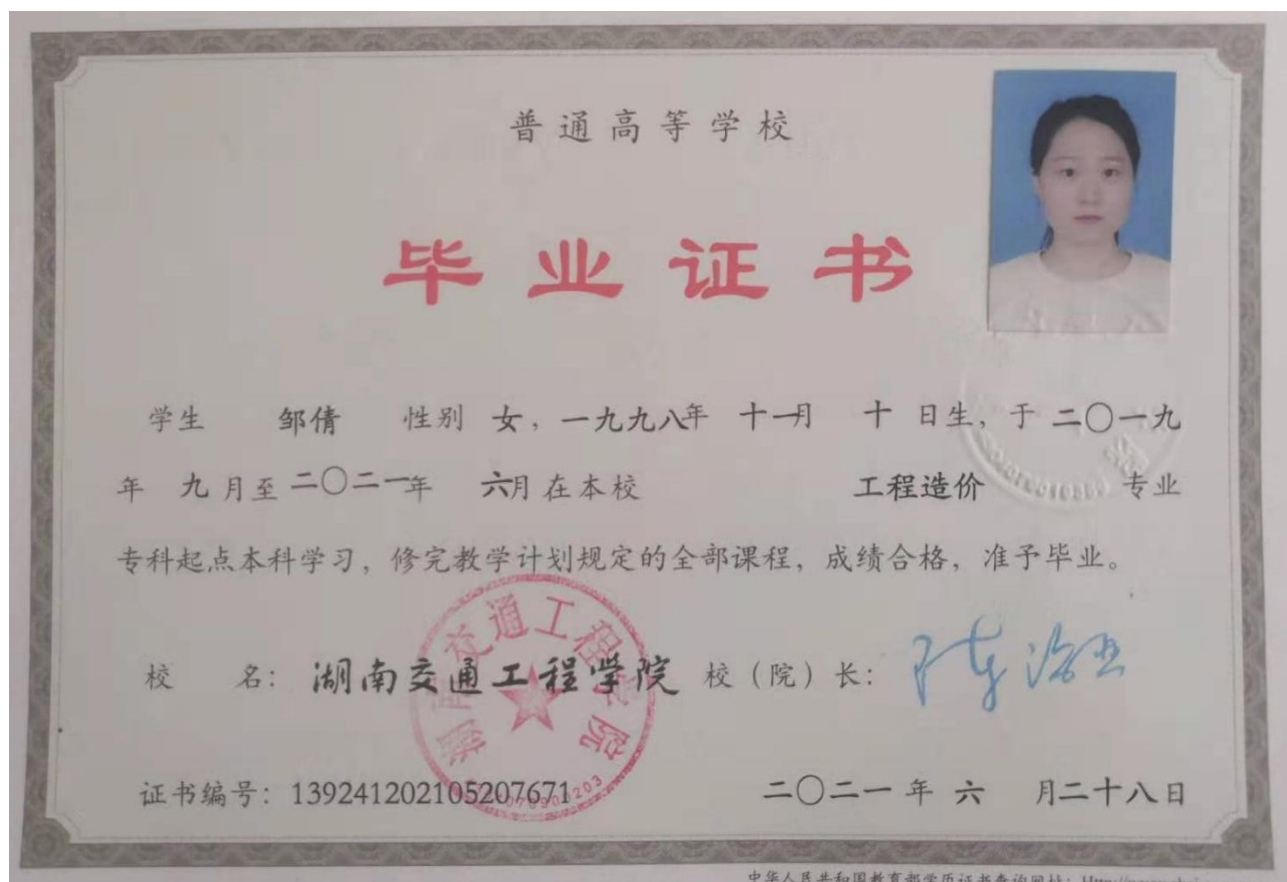 普通高等学校
毕业证书
学生 邹倩 性别 女，一九九八年 十一月 十 日生，于 二〇一九
年 九 月至 二〇二一年 六月 在本校 工程造价 专业
专科起点本科学习，修完教学计划规定的全部课程，成绩合格，准予毕业。
湖南交通工程学院
校 名：湖南交通工程学院 校（院）长：
证书编号：139241202105207671 二〇二一 年 六 月二十八日
中华人民共和国教育部学历证书查询网址：